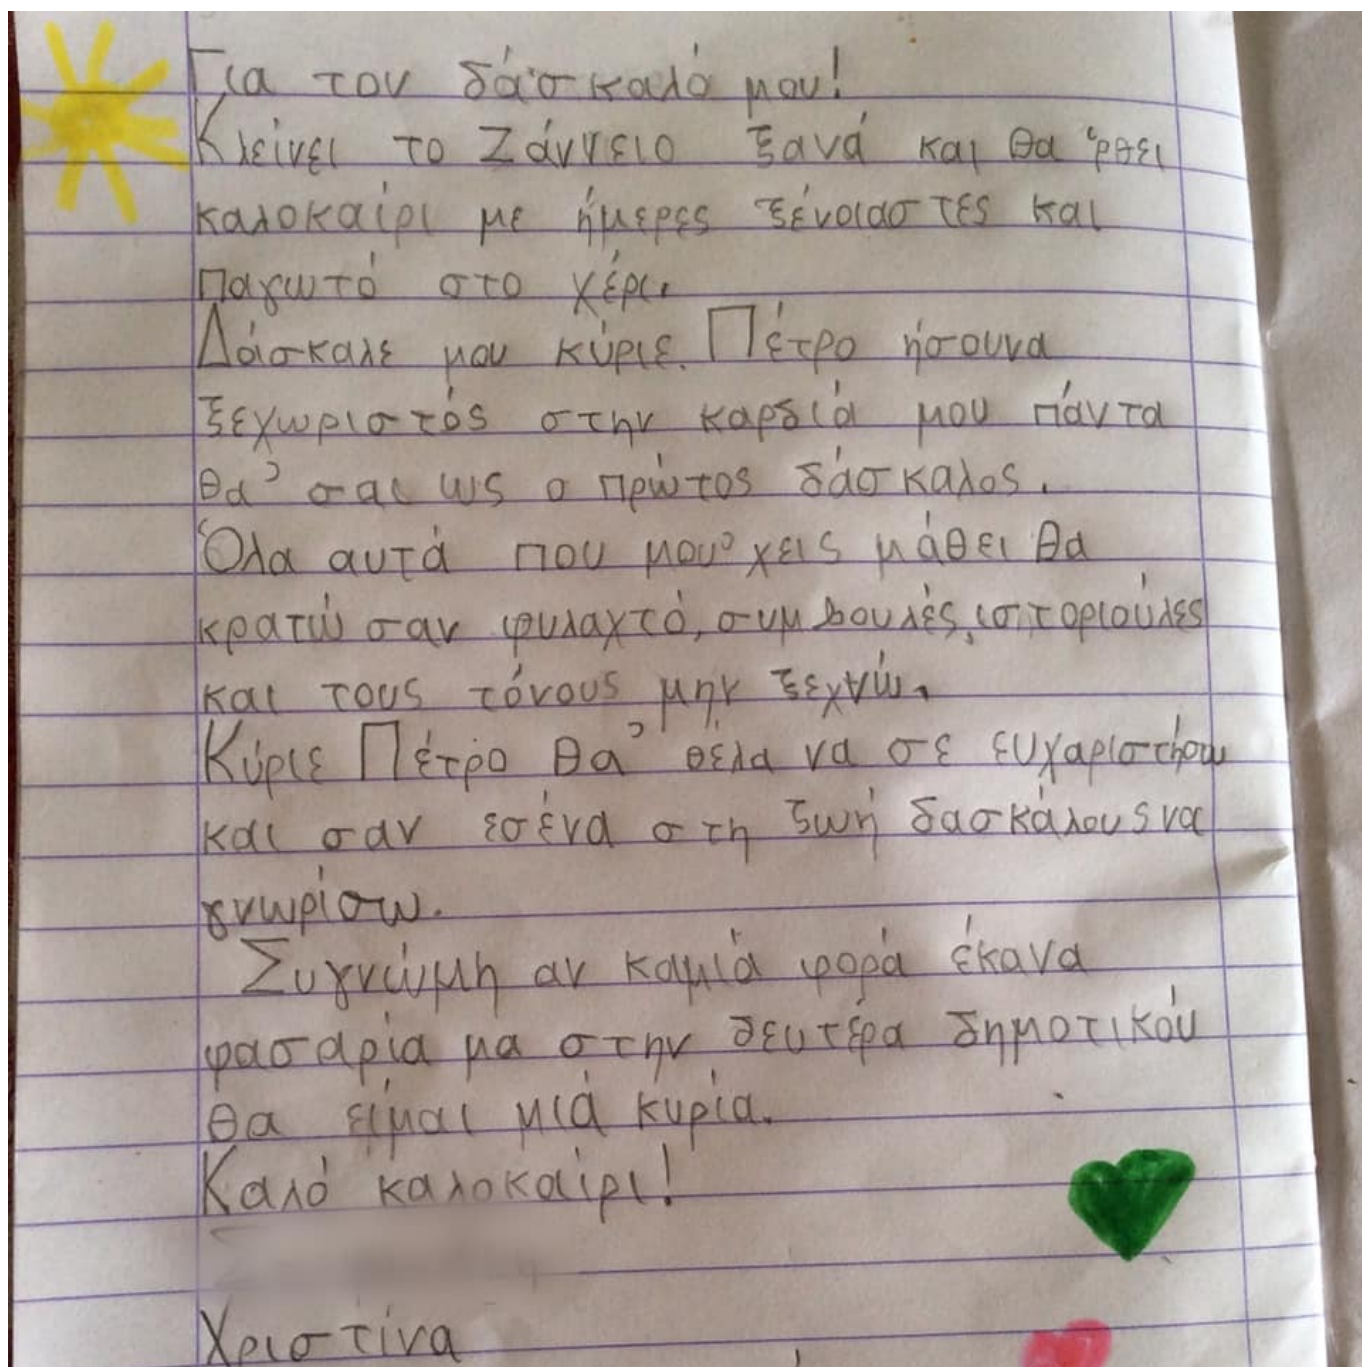 Για τον δάσκαλό μου!
Κλείνει το Ζάννειο ξανά και θα 'ρθει
καλοκαίρι με ήμερες ξένοιαστες και
παγωτό στο χέρι.
Δάσκαλε μου κύριε Πέτρο ήσουνα
ξεχωριστός στην καρδιά μου πάντα
θα' σαι ως ο πρώτος δάσκαλος.
Όλα αυτά που μου' χεις μάθει θα
κρατώ σαν φυλαχτό, συμβουλές, ιστοριούλες
και τους τόνους μην ξεχνώ.
Κύριε Πέτρο θα' θελα να σε ευχαριστήσω
και σαν εσένα στη ζωή δασκάλους να
γνωρίσω.
Συγνώμη αν καμιά φορά έκανα
φασαρία μα στην δευτέρα δημοτικού
θα είμαι μιά κυρία.
Καλό καλοκαίρι!
Χριστίνα